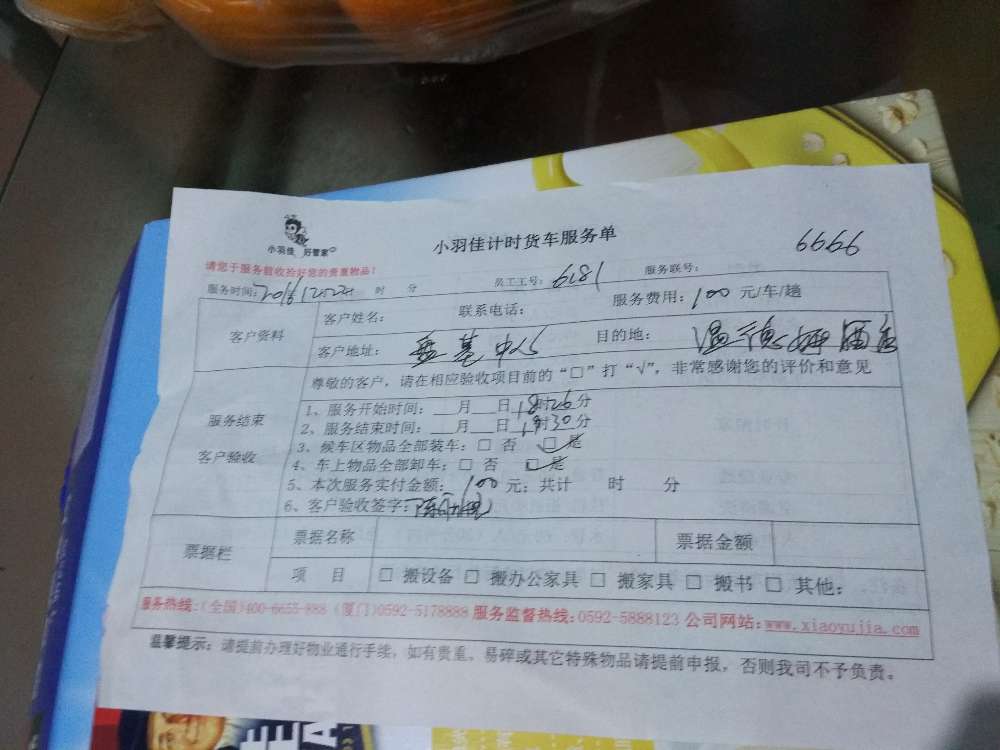 小羽佳 好管家
小羽佳计时货车服务单
6666
请您于服务前收拾好您的贵重物品!
服务时间: 时 分 员工工号: 6181 服务联号:
客户资料
客户姓名: 联系电话: 服务费用: 100 元/车/趟
客户地址: 盘基中心 目的地: 温德姆酒店
尊敬的客户, 请在相应验收项目前的“□”打“√”, 非常感谢您的评价和意见
服务结束
客户验收
1、服务开始时间: 月 日 18时26分
2、服务结束时间: 月 日 时30分
3、候车区物品全部装车: □ 否 □ 是
4、车上物品全部卸车: □ 否 □ 是
5、本次服务实付金额: 100 元; 共计 时 分
6、客户验收签字:
票据栏
票据名称 票据金额
项 目 □ 搬设备 □ 搬办公家具 □ 搬家具 □ 搬书 □ 其他:
服务热线:(全国)400-6655-888 (厦门)0592-5178888 服务监督热线:0592-5888123 公司网站:www.xiaoyujia.com
温馨提示: 请提前办理好物业通行手续, 如有贵重、易碎或其它特殊物品请提前申报, 否则我司不予负责。